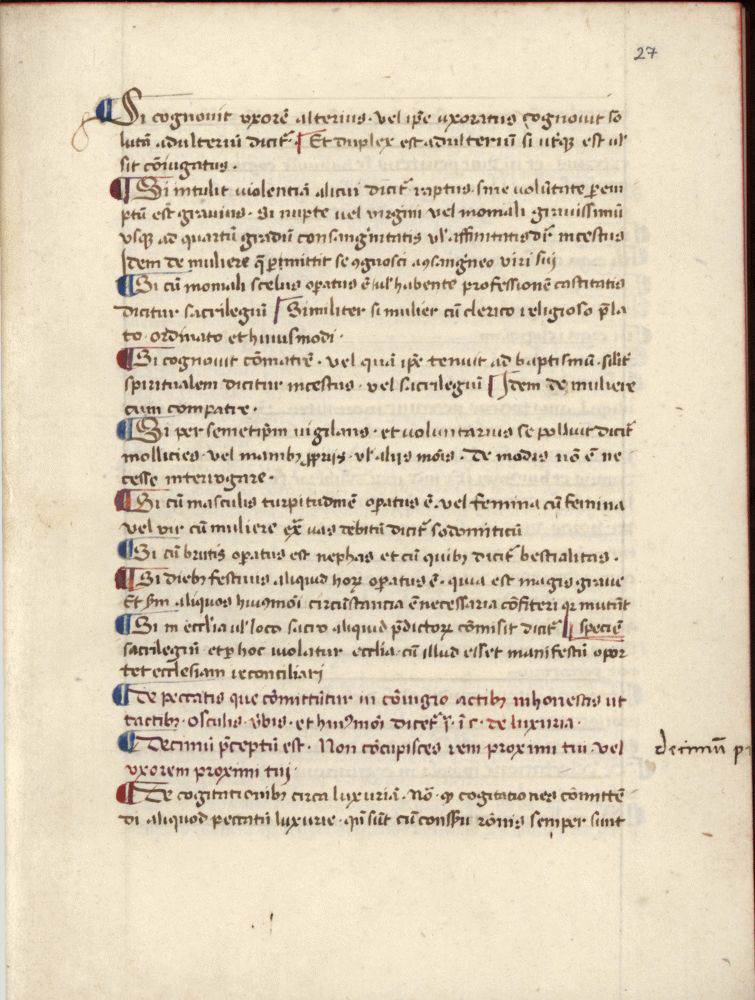 27
Si cognouit vxorē alterius · vel ip̄e uxoratus cognouit so
lutā adulteriū dicit᷑ · Et duplex est adulteriū si ut̄q̄ est ul᷑
sit cōiugatus ·
Si intulit uiolentiā alicui dicit᷑ raptus · sine uolūtate p̱em
ptū est grauius · Si nupte uel virgini vel moniali grauissimū
vsq̄ ad quartū gradiū consanḡnitatis vl᷑ affinitatis dr̄ incestus
Idem de muliere q̄ p̱mittit se ꝯgnosci a ꝯsanḡneo viri sui
Si cū moniali scelus op̱atus ē ul᷑ habente professionē castitatis
dicitur sacrilegiū Similiter si mulier cū clerico religioso p̄la
to · ordinato et huiusmodi ·
Si cognouit cōmatrē · vel quā ip̄e tenuit ad baptismū · silit᷑
spiritualem dicitur incestus · vel sacrilegiū Idem de muliere
cum compatre ·
Si per semetip̄m uigilans · et voluntarius se polluit dicit᷑
mollicies · vel manibꝫ p̱p̱rijs · vl᷑ alijs mōis · De modis nō ē ne
cesse interrogare ·
Si cū masculis turpitudinē op̱atus ē · vel femina cū femina
vel vir cū muliere ex̄ uas debitū dicit᷑ sodomiticū
Si cū brutis op̱atus est nephas et cū quibꝫ dicit᷑ bestialitas ·
Si diebꝫ festiuis aliquid hoꝝ op̱atus ē · quia est magis graue
Et sm̄ aliquos huiꝰmōi circūstancia ē necessaria cōfiteri qr̄ mutāt
Si in ecclīa ul᷑ loco sacro aliquid p̄dictoꝝ cōmisit dicit᷑ speciē
sacrilegiū · et p̱ hoc uiolatur ecclīa · cū illud esset manifestū opor
tet ecclesiam reconciliari
De peccatis que cōmittūtur in cōiugio actibꝫ inhonestis ut
tactibꝫ · Osculis · v̄bis · et huiꝰmōi dicet᷑ · de luxuria ·
Decimū p̄ceptū est · Non cōcupisces rem proximi tui · vel
decimū p
vxorem proximi tui ·
De cogitationibꝫ circa luxuriā · Nō · cogitationes cōmittē
di aliquod peccatū luxurie · sūt cū rōnis semper sunt